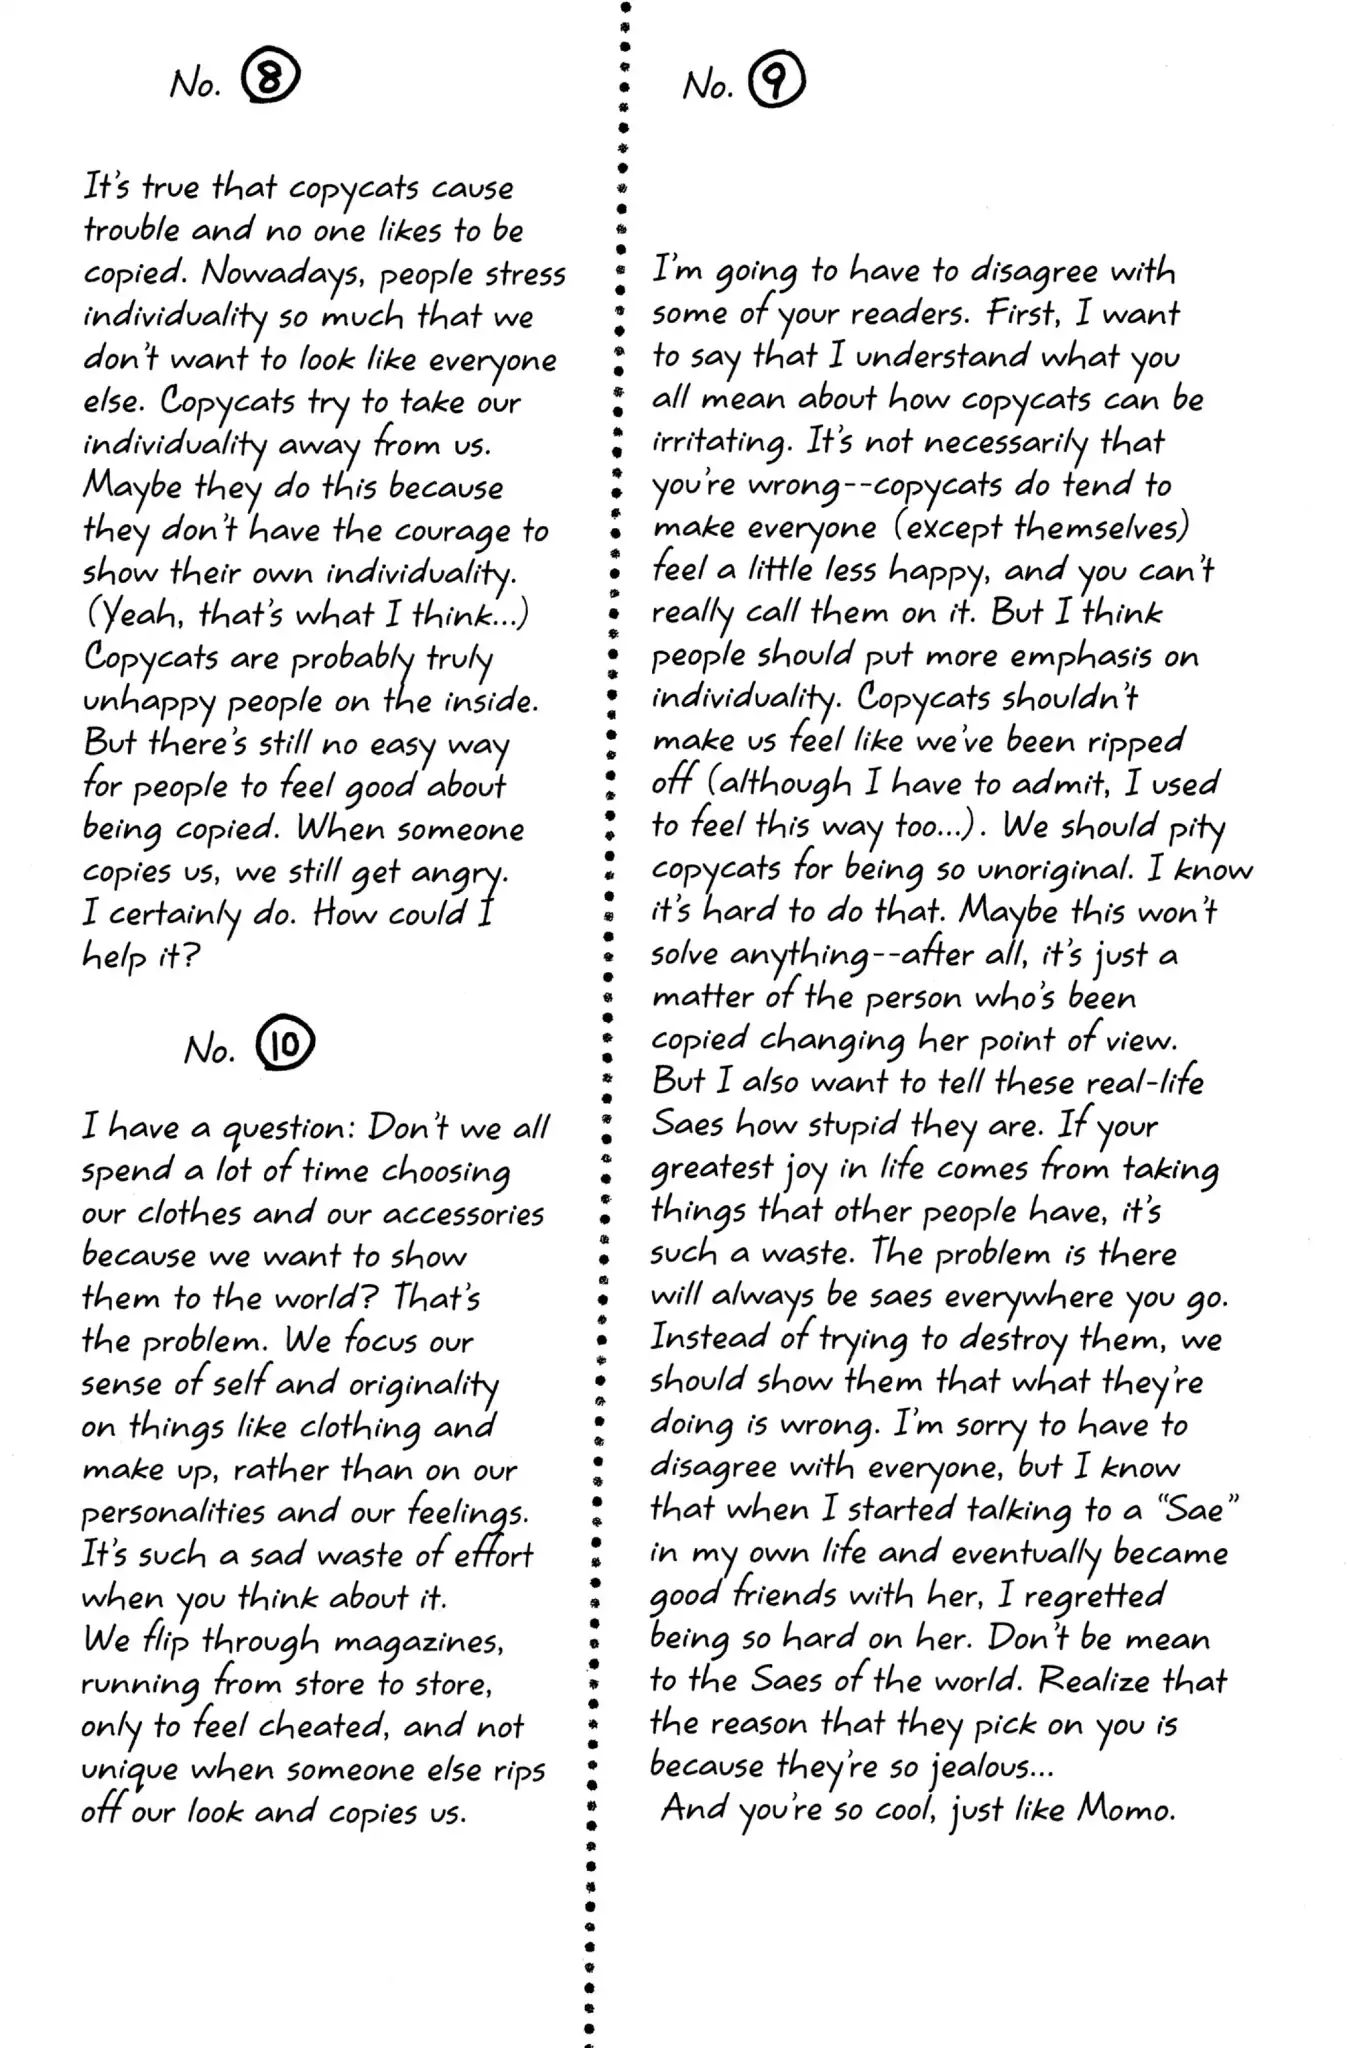 No. 8
It's true that copycats cause
trouble and no one likes to be
copied. Nowadays, people stress
individuality so much that we
don't want to look like everyone
else. Copycats try to take our
individuality away from us.
Maybe they do this because
they don't have the courage to
show their own individuality.
(Yeah, that's what I think...)
Copycats are probably truly
unhappy people on the inside.
But there's still no easy way
for people to feel good about
being copied. When someone
copies us, we still get angry.
I certainly do. How could I
help it?
No. 10
I have a question: Don't we all
spend a lot of time choosing
our clothes and our accessories
because we want to show
them to the world? That's
the problem. We focus our
sense of self and originality
on things like clothing and
make up, rather than on our
personalities and our feelings.
It's such a sad waste of effort
when you think about it.
We flip through magazines,
running from store to store,
only to feel cheated, and not
unique when someone else rips
off our look and copies us.
No. 9
I'm going to have to disagree with
some of your readers. First, I want
to say that I understand what you
all mean about how copycats can be
irritating. It's not necessarily that
you're wrong--copycats do tend to
make everyone (except themselves)
feel a little less happy, and you can't
really call them on it. But I think
people should put more emphasis on
individuality. Copycats shouldn't
make us feel like we've been ripped
off (although I have to admit, I used
to feel this way too...). We should pity
copycats for being so unoriginal. I know
it's hard to do that. Maybe this won't
solve anything--after all, it's just a
matter of the person who's been
copied changing her point of view.
But I also want to tell these real-life
Saes how stupid they are. If your
greatest joy in life comes from taking
things that other people have, it's
such a waste. The problem is there
will always be saes everywhere you go.
Instead of trying to destroy them, we
should show them that what they're
doing is wrong. I'm sorry to have to
disagree with everyone, but I know
that when I started talking to a "Sae"
in my own life and eventually became
good friends with her, I regretted
being so hard on her. Don't be mean
to the Saes of the world. Realize that
the reason that they pick on you is
because they're so jealous...
And you're so cool, just like Momo.